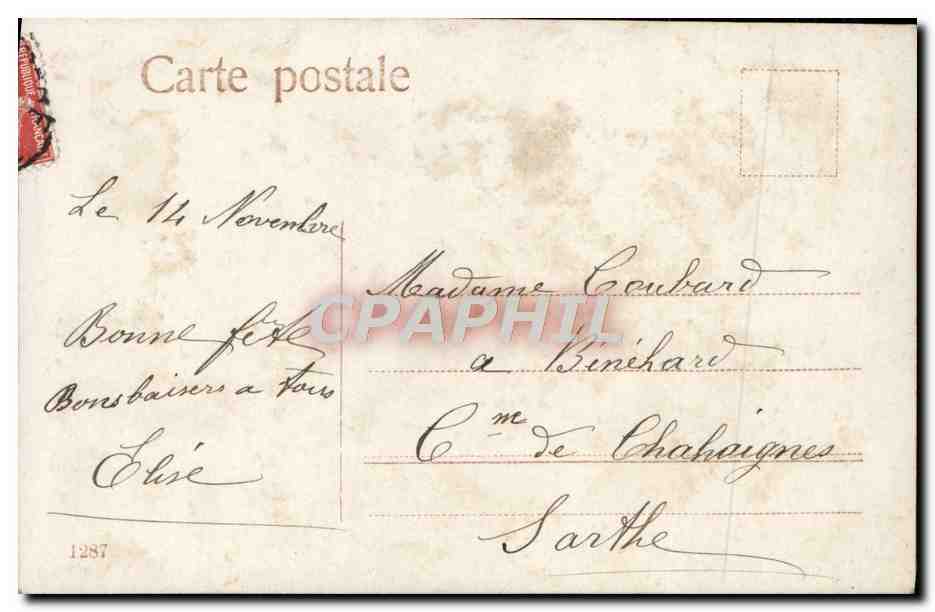 Carte postale
RÉPUBLIQUE
Le 14 Novembre
Bonne fête
Bons baisers a tous
Elise
Madame Coubard
a Bénéhard
Cme de Chahaignes
Sarthe
CPAPHIL
1287